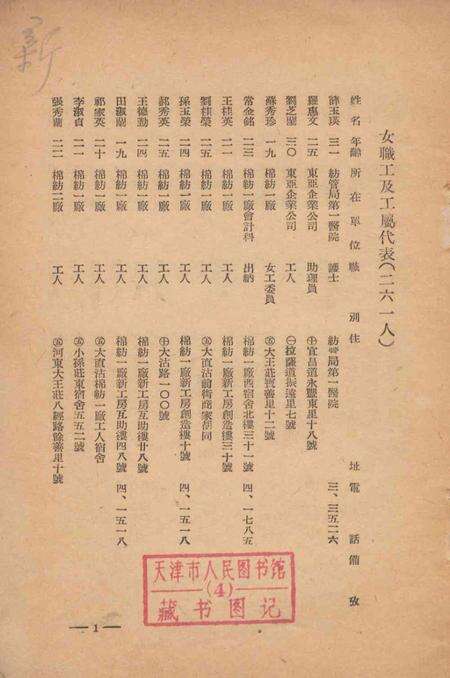 新
女職工及工屬代表(二六一人)
姓名 年齡 所在單位 職別 住址 電話 備攷
薛玉瑛 三一 紡管局第一醫院 護士 紡管局第一醫院 三、三五二六
羅惠文 二五 東亞企業公司 助理員 ㊉宜昌道永豐東里十八號
劉芝蘭 三〇 東亞企業公司 工人 ㊀拉薩道振遠里七號
蘇秀珍 一九 棉紡一廠 女工委員 ㊄大王莊寶善里十二號
常金銘 二三 棉紡一廠會計科 出納 棉紡一廠西宿舍北樓三十一號 四、一七八五
王桂英 二一 棉紡一廠 工人 棉紡一廠新工房創造樓三十號
劉桂榮 二五 棉紡一廠 工人 ㊄大直沽前街商家胡同
孫玉榮 二四 棉紡一廠 工人 棉紡一廠新工房創造樓十號 四、一五一八
郝秀英 二五 棉紡一廠 工人 ㊉大沽路一〇〇號
王德勤 二四 棉紡一廠 工人 棉紡一廠新工房互助樓廿八號
田淑蘭 一九 棉紡一廠 工人 棉紡一廠新工房互助樓四八號 四、一五一八
祁家英 二十 棉紡一廠 工人 ㊄大直沽棉紡一廠工人宿舍
李淑貞 二一 棉紡二廠 工人 ㊄小孫莊東宿舍五五二號
張秀蘭 二二 棉紡二廠 工人 ㊄河東大王莊八經路餘善里十號
天津市人民图书馆
(4)
藏书图记
—1—